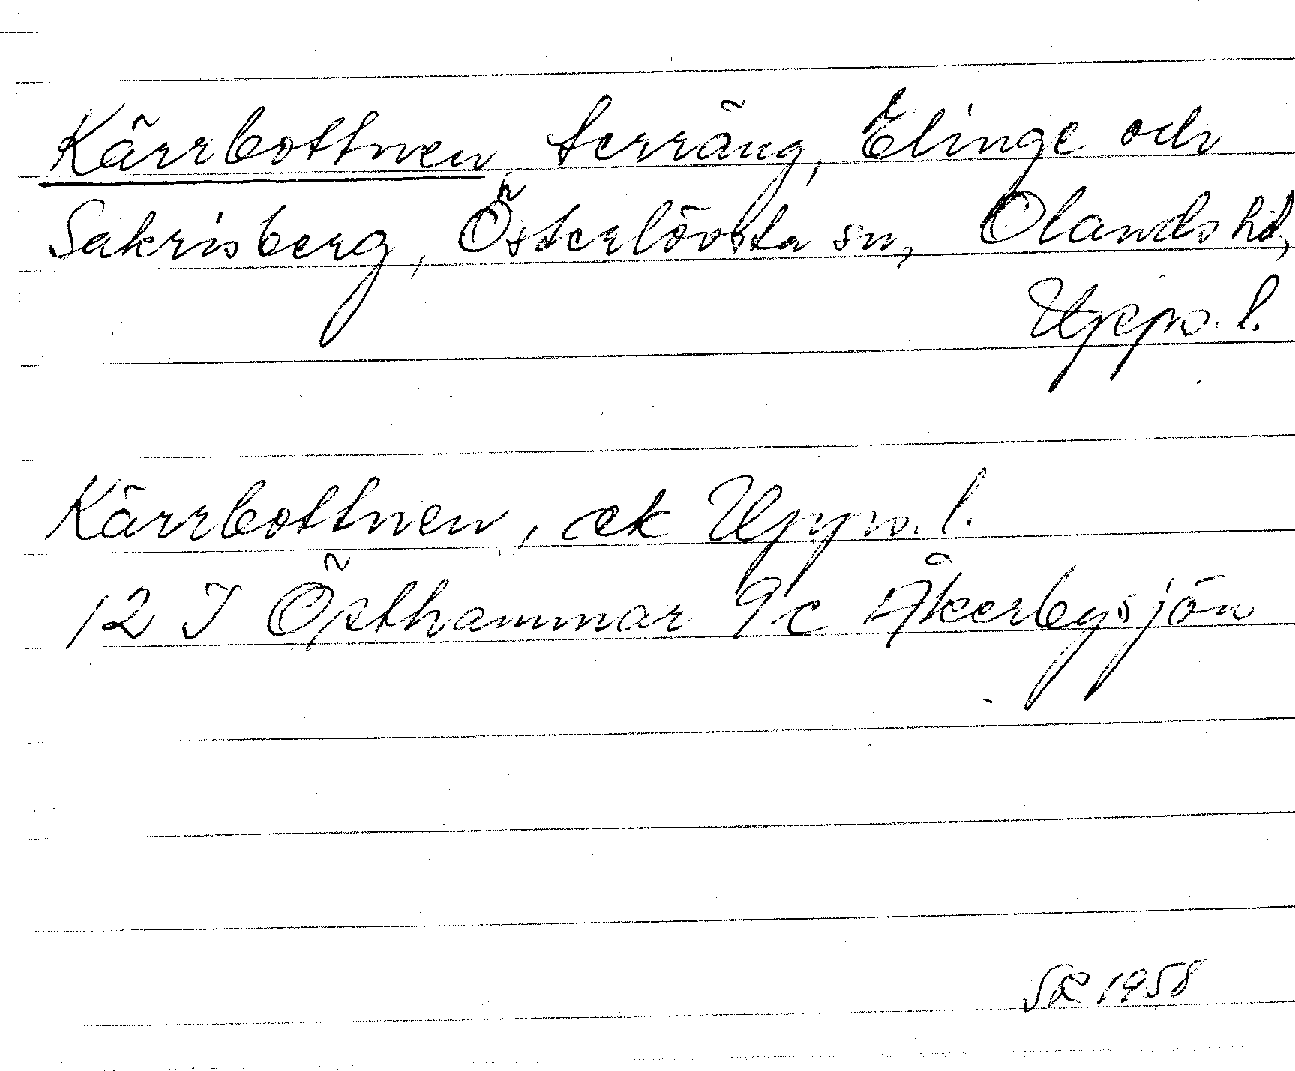 Kärrbottnen, terräng, Elinge och
Sakrisberg, Österlövsta sn, Olands hd,
Upps. l.
Kärrbottnen, ek Upps. l.
12 I Östhammar 9 c Åkerbysjön
1958